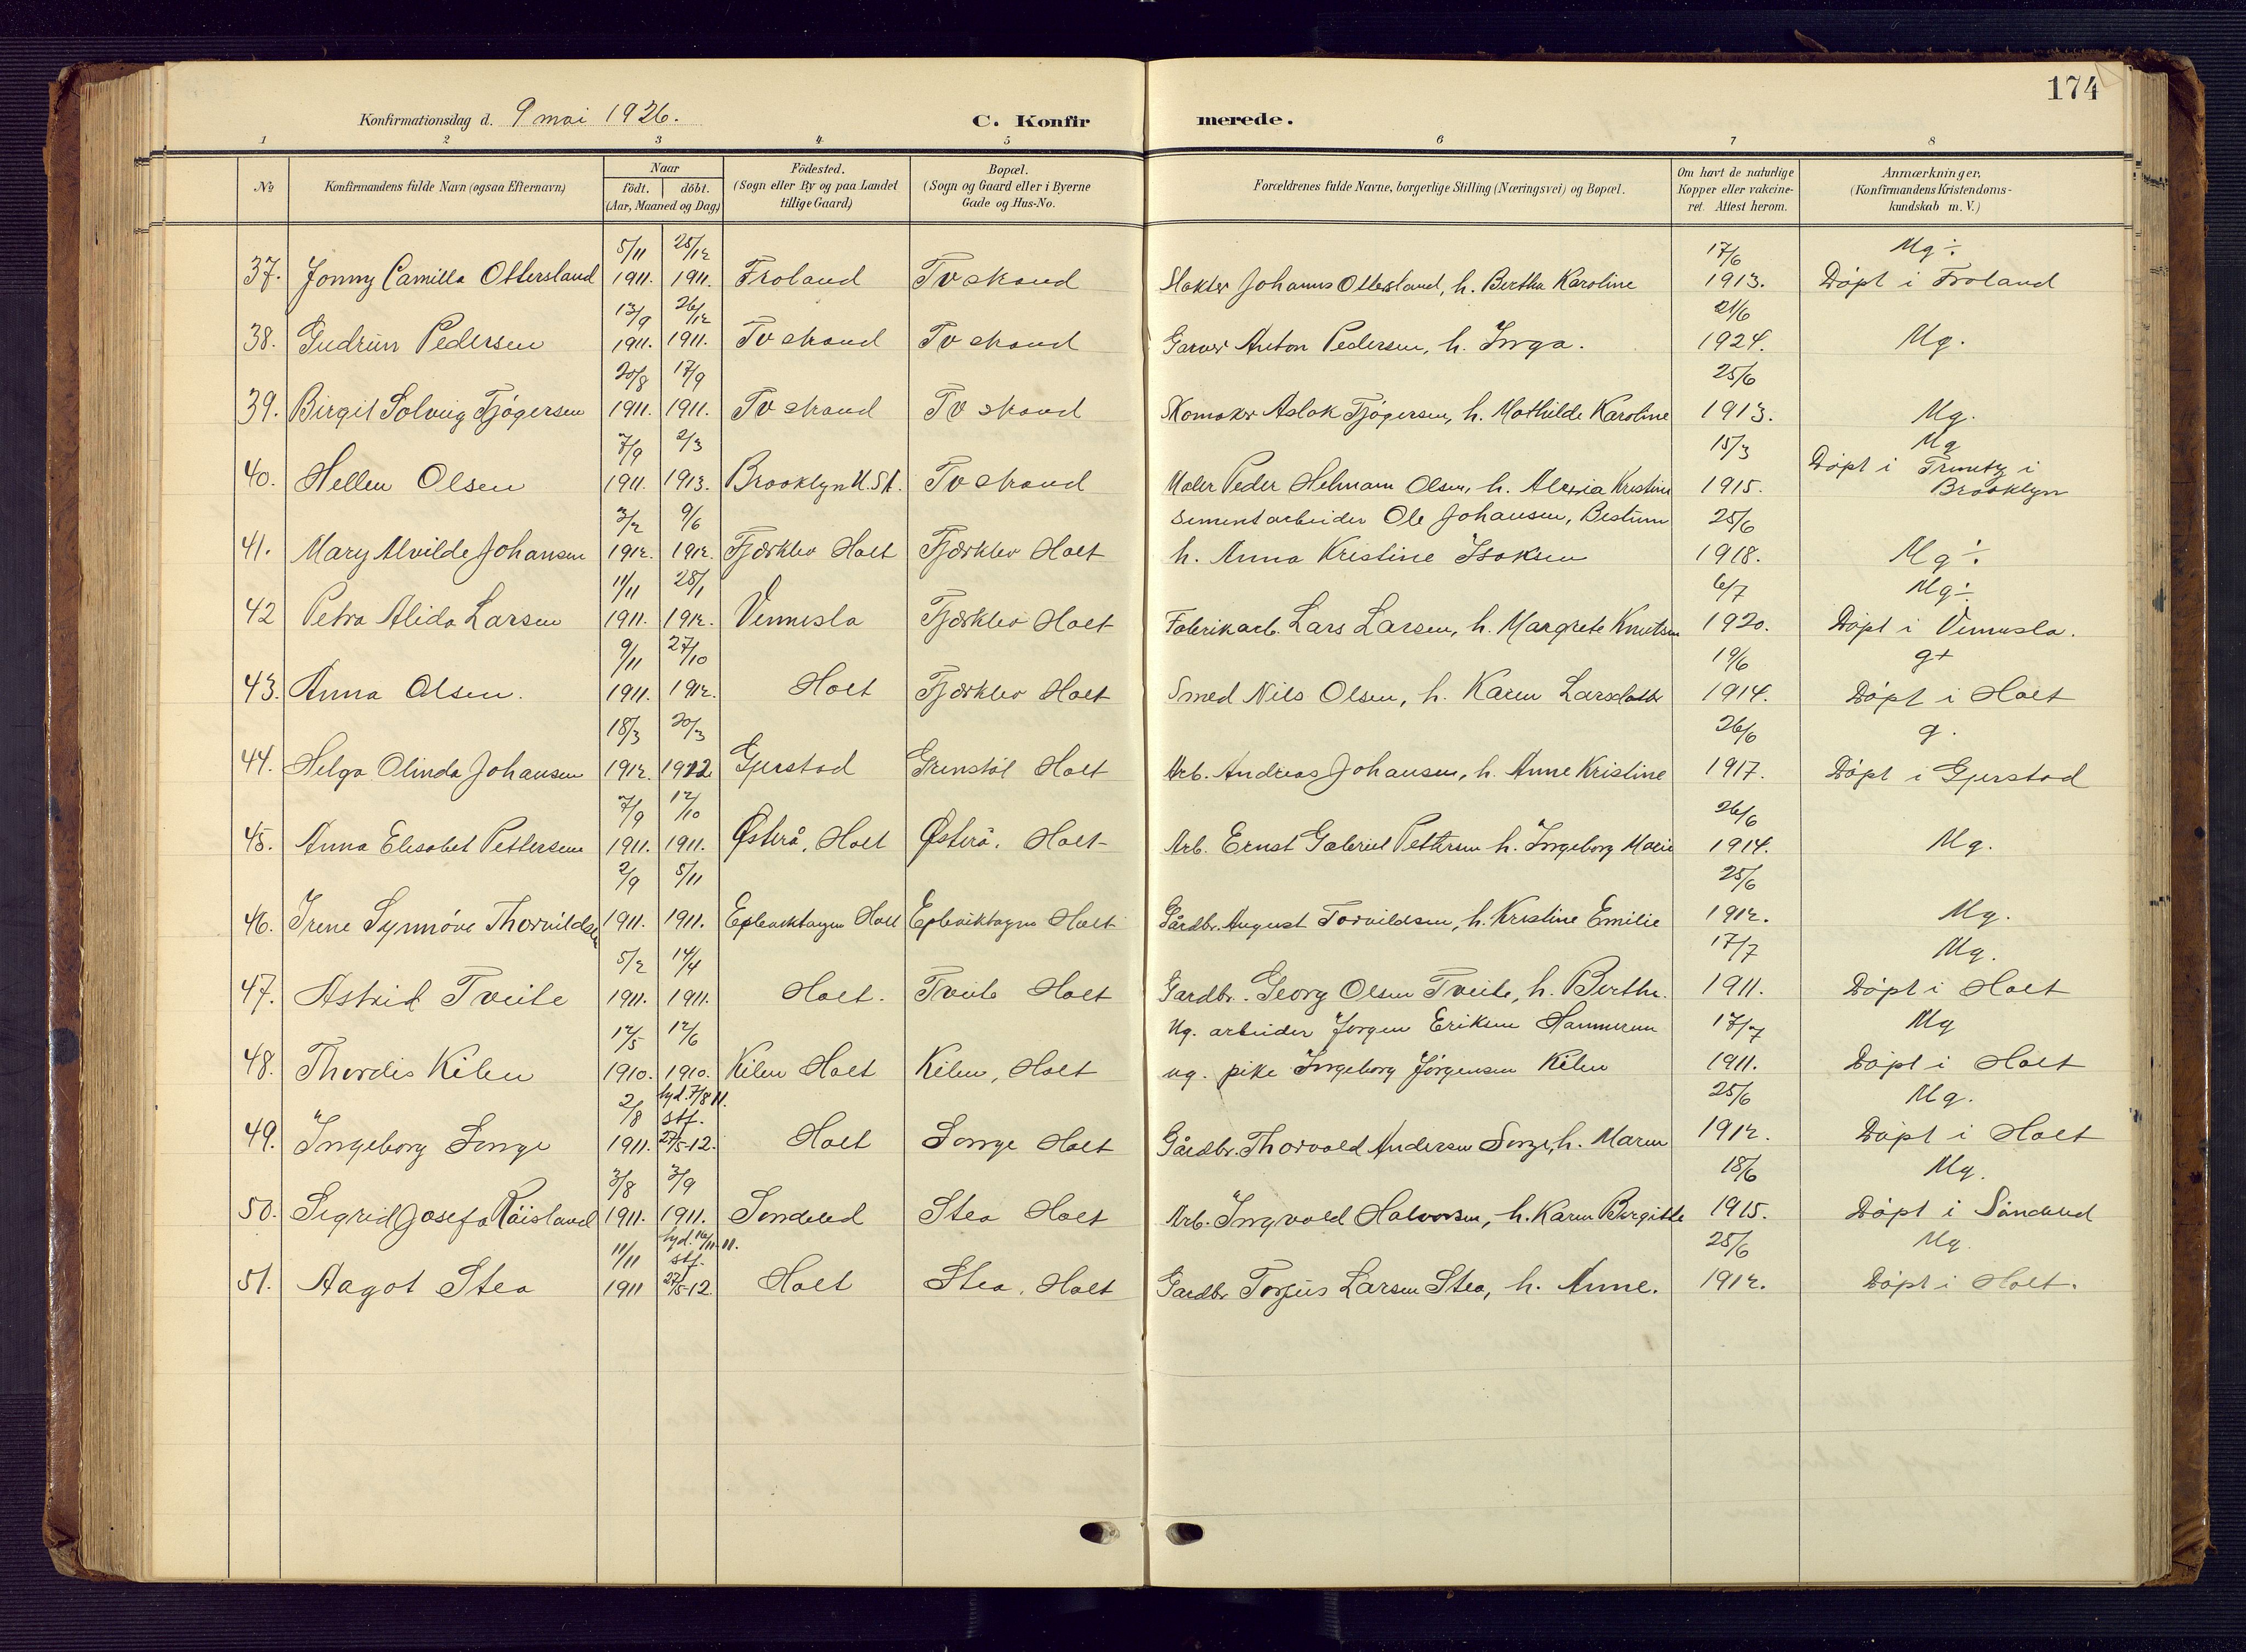 174
Konfirmationsdag d. 9 mai 1926.
C. Konfirmerede.
1 2 3 4 5 6 7 8
No
Konfirmandens fulde Navn (ogsaa Efternavn)
Naar
födt. döbt.
(Aar, Maaned og Dag)
Födested.
(Sogn eller By og paa Landet
tillige Gaard)
Bopæl.
(Sogn og Gaard eller i Byerne
Gade og Hus-No.
Forældrenes fulde Navne, borgerlige Stilling (Næringsvei) og Bopæl.
Om havt de naturlige
Kopper eller vakcine-
ret. Attest herom.
Anmærkninger,
(Konfirmandens Kristendoms-
kundskab m. V.)
5/11 25/12 17/6 Mg ÷
37. Jonny Camilla Ottersland 1911. 1911. Froland Tvstrand Slakter Johannes Ottersland, h. Bertha Karoline 1913. Döpt i Froland
13/9 26/12 21/6
38. Gudrun Pedersen 1911. 1911. Tvstrand Tvstrand Garver Anton Pedersen, h. Inga. 1924. Mg.
20/8 17/9 25/6
39. Birgit Solveig Tjögersen 1911. 1911. Tvstrand Tvstrand Skomaker Aslak Tjögersen, h. Mathilde Karoline 1913. Mg.
7/9 2/3 15/3 Mg
40. Hellen Olsen 1911. 1913. Brooklyn U.S.A. Tvstrand Maler Peder Helmam Olsen, h. Alexia Kristine 1915. Döpt i Trinity i
Brooklyn
3/2 9/6 Sementarbeider Ole Johansen, Bestum 25/6
41. Mary Alvilde Johansen 1912. 1912. Fjærklev Holt Fjærklev Holt h. Anna Kristine Isaksen 1918. Mg ÷.
11/11 28/1 6/7 Mg ÷
42 Petra Alida Larsen 1911. 1912. Vennesla Fjærklev Holt Fabrikarb. Lars Larsen, h. Margrete Knutsen 1920. Döpt i Vennesla.
9/11 27/10 19/6 g+
43. Anna Olsen. 1911. 1912. Holt Fjærklev Holt Smed Nils Olsen, h. Karen Larsdatter 1914. Döpt i Holt
18/3 20/3 26/6 g.
44. Helga Olinda Johansen 1912. 1912 Gjerstad Grenstöl Holt Arb. Andreas Johansen, h. Anne Kristine 1917. Döpt i Gjerstad
7/9 12/10 26/6
45. Anna Elisabet Pettersen 1911. 1911. Østerå, Holt Østerå, Holt Arb. Ernst Gabriel Pettersen h. Ingeborg Marie 1914. Mg.
2/9 5/11 25/6
46. Irene Synnöve Thorvildsen 1911. 1911. Epleviktangen Holt Epleviktangen Holt Gårdbr. August Torvildsen, h. Kristine Emilie 1912. Mg.
5/2 14/4 17/7 Mg.
47. Astrid Tveite 1911. 1911. Holt. Tveite Holt Gardbr. Georg Olsen Tveite, h. Berthe. 1911. Döpt i Holt
12/5 12/6 Ug. arbeider Jorgen Eriksen Hammeren 17/7 Mg
48. Thordis Kilen 1910. 1910. Kilen Holt Kilen, Holt ug. pike Ingeborg Jörgensen Kilen 1911. Döpt i Holt
2/8 hjd. 7/8 11. stf. 25/6 Mg.
49. Ingeborg Songe 1911. 27/5-12. Holt Songe Holt Gårdbr. Thorvald Andersen Songe, h. Maren 1912. Döpt i Holt
3/8 3/9 18/6 Mg.
50. Sigrid Josefa Röisland 1911. 1911. Söndeled Stea Holt Arb. Ingvald Halvorsen, h. Karen Birgitte 1915. Döpt i Söndeled
11/11 hjd. 16/11-11. stf. 25/6 Mg.
51. Aagot Stea 1911 27/5-12. Holt Stea, Holt Gardbr Torjus Larsen Stea, h. Anne. 1912. Döpt i Holt.